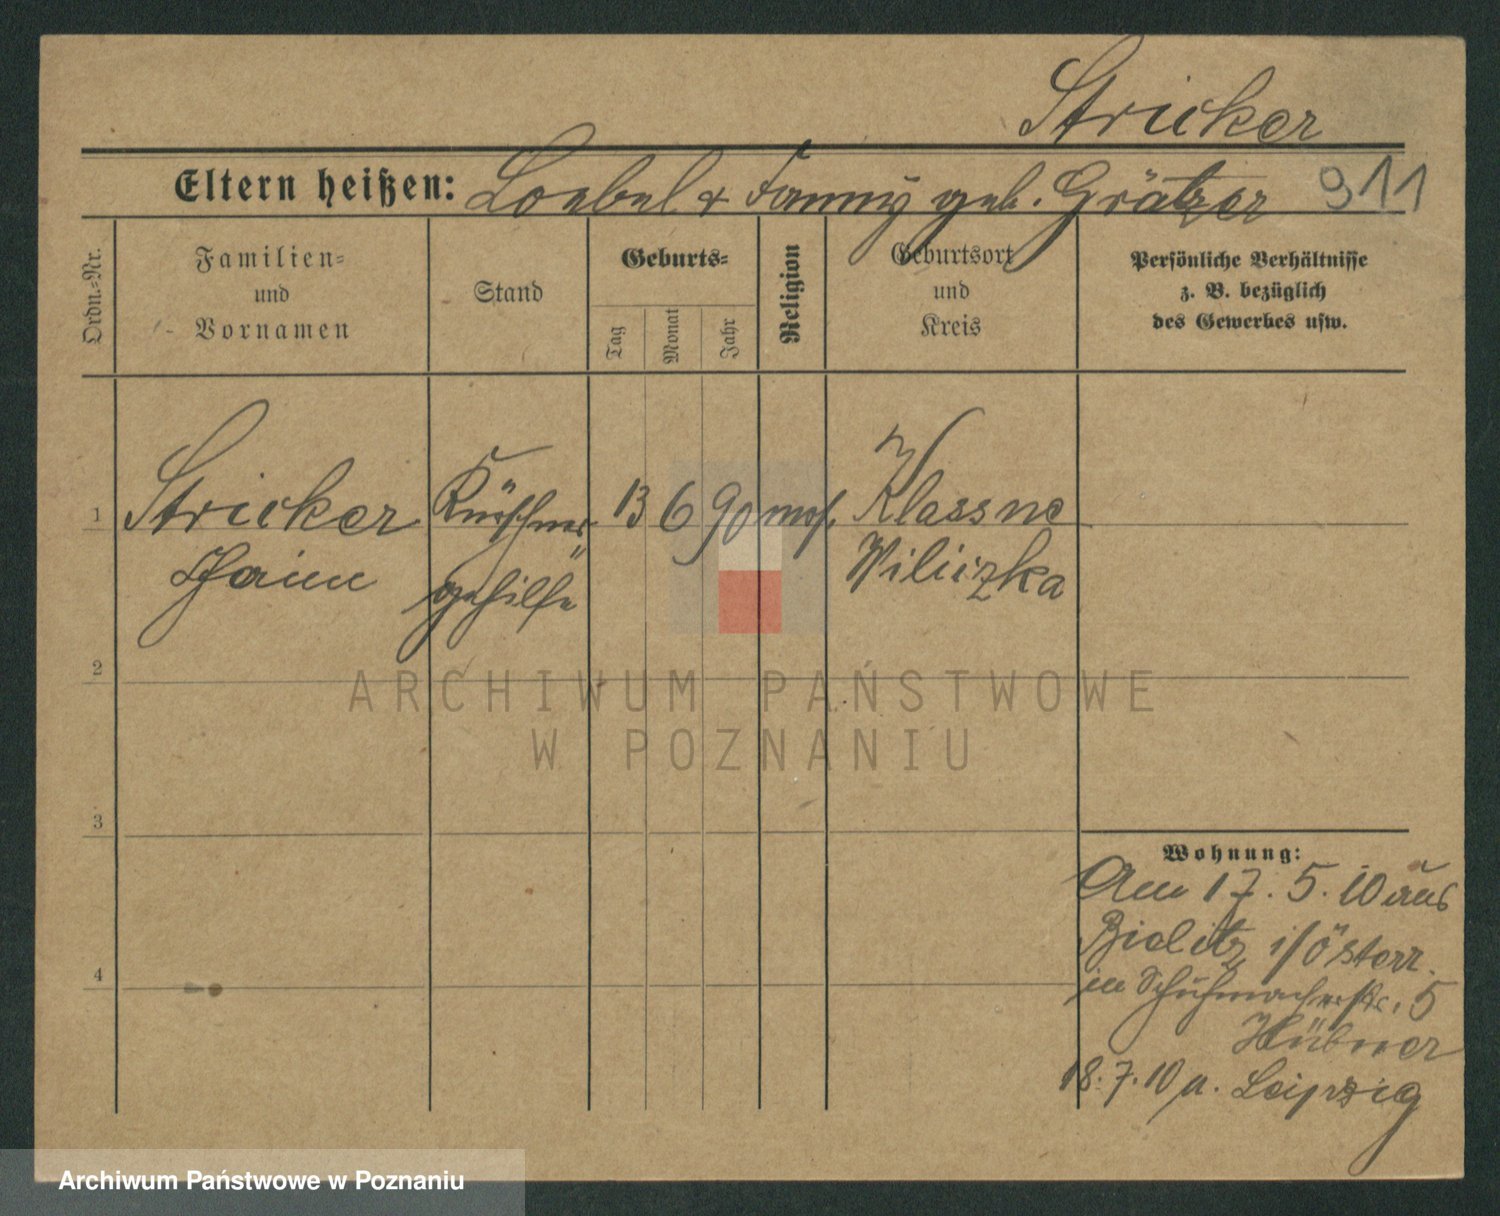 Stricker
Eltern heißen: Loebel & Fanny geb. Grätzer 911
Ordn.-Nr.
Familien-
und
Vornamen
Stand
Geburts-
Tag
Monat
Jahr
Religion
Geburtsort
und
Kreis
Persönliche Verhältnisse
z. B. bezüglich
des Gewerbes usw.
1 Stricker Kürschner- 13 6 90 mos. Klassne
Jaim gehilfe Wiliczka
2
ARCHIWUM PAŃSTWOWE
W POZNANIU
3
Wohnung:
Am 17.5.10 aus
Bielitz i/Österr.
in Schuhmacherstr. 5
Hübner
4
18.7.10 n. Leipzig
Archiwum Państwowe w Poznaniu